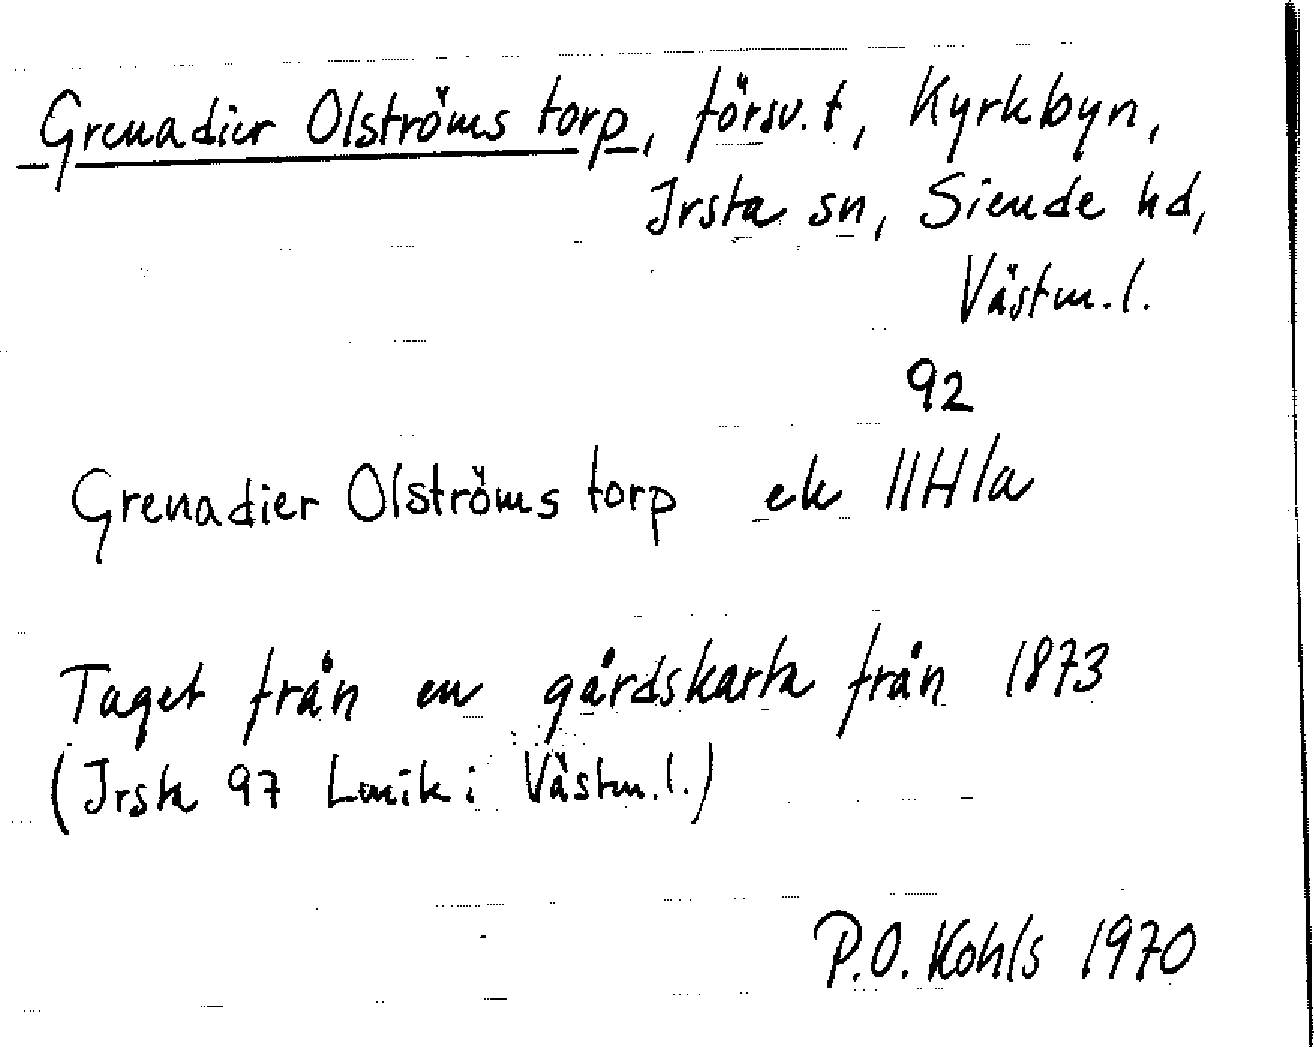 Grenadier Olströms torp, försv. t, Kyrkbyn,
Irsta sn, Siende hd,
Västm. l.
92
Grenadier Olströms torp ek 11H1a
Taget från en gårdskarta från 1873
(Irsta 97 Lmik i Västm. l.)
P.O. Kohls 1970